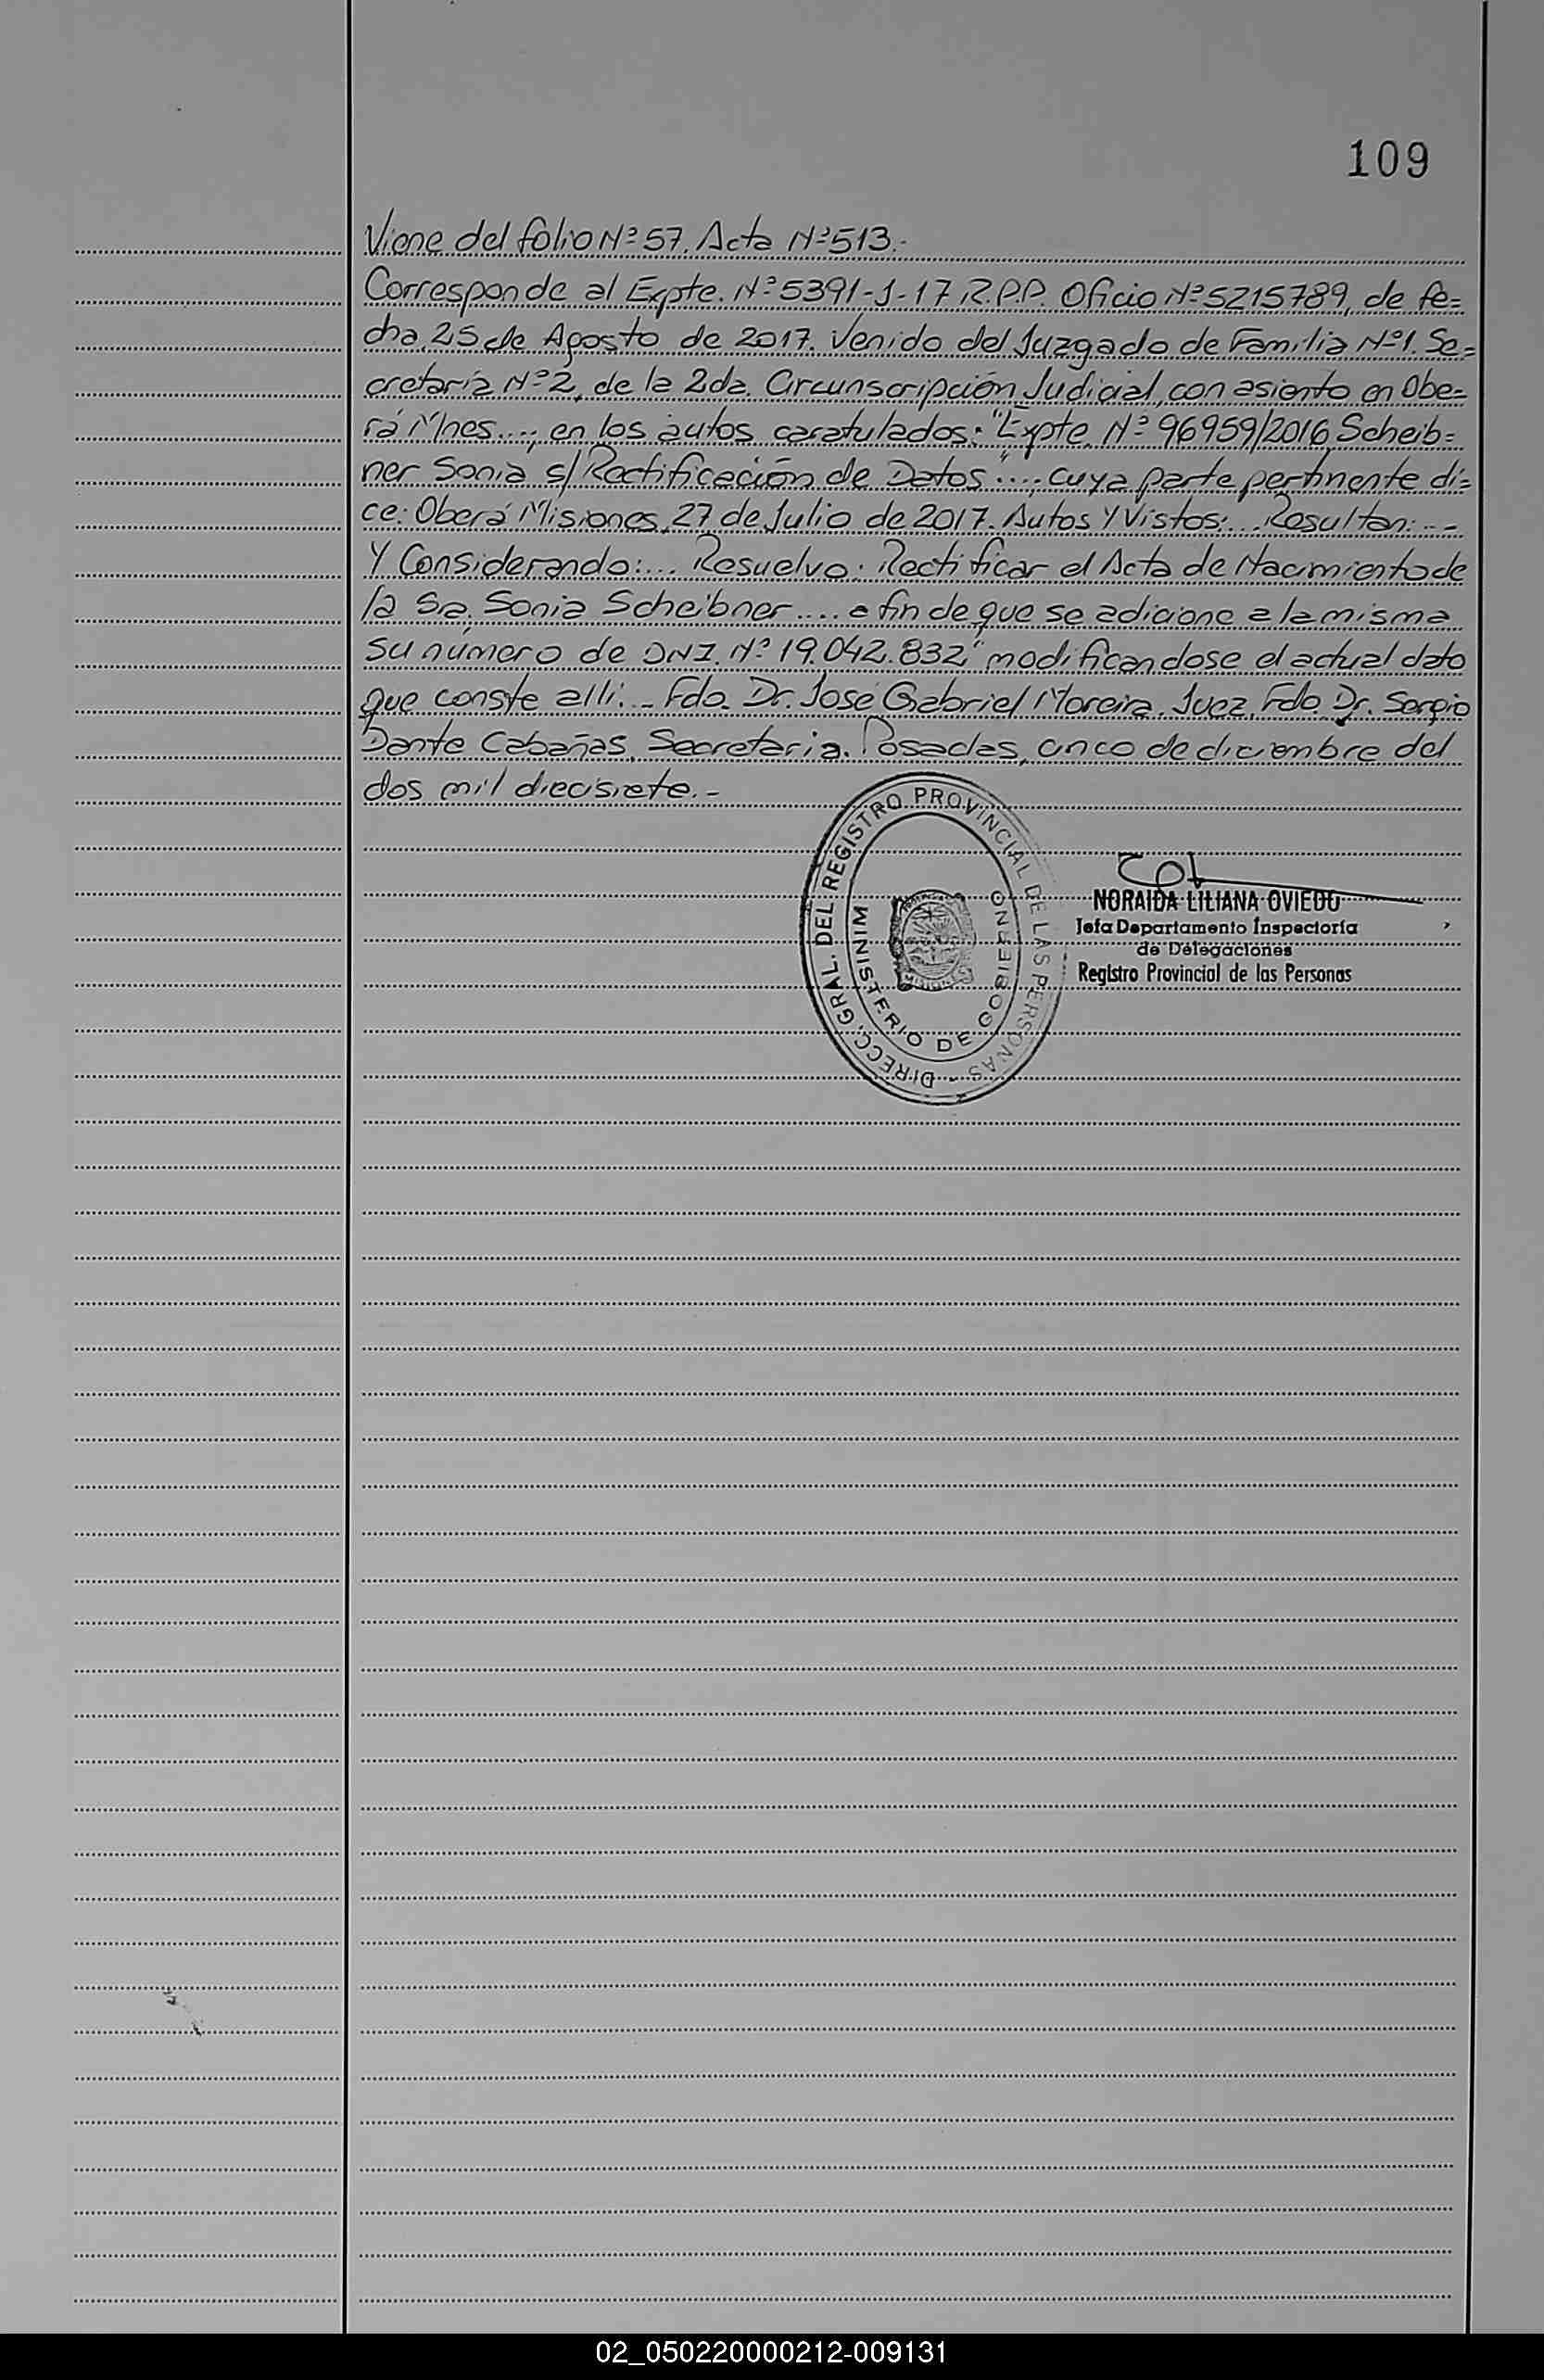 109
Viene del folio Nº 57. Acta Nº 513.-
Corresponde al Expte. Nº 5391-J-17 R.P.P. Oficio Nº 5215789, de fe=
cha 25 de Agosto de 2017. Venido del Juzgado de Familia Nº 1. Se=
cretaría Nº 2, de la 2da. Circunscripción Judicial, con asiento en Obe=
rá Mnes...., en los autos caratulados: "Expte. Nº 96959/2016 Scheib=
ner Sonia s/ Rectificación de Datos"...., cuya parte pertinente di=
ce: Oberá Misiones, 27 de Julio de 2017. Autos Y Vistos:... Resultan:...-
Y Considerando:.... Resuelvo: Rectificar el Acta de Nacimiento de
la Sra. Sonia Scheibner.... a fin de que se adicione a la misma
su número de DNI. Nº 19.042.832," modificandose el actual dato
que conste alli.- Fdo. Dr. José Gabriel Moreira. Juez. Fdo. Dr. Sergio
Dante Cabañas. Secretaria. Posadas, cinco de diciembre del
dos mil diecisiete.-
DIRECC. GRAL. DEL REGISTRO PROVINCIAL DE LAS PERSONAS -
MINISTERIO DE GOBIERNO
NORAIDA LILIANA OVIEDO
Jefa Departamento Inspectoría
de Delegaciones
Registro Provincial de las Personas
02_050220000212-009131